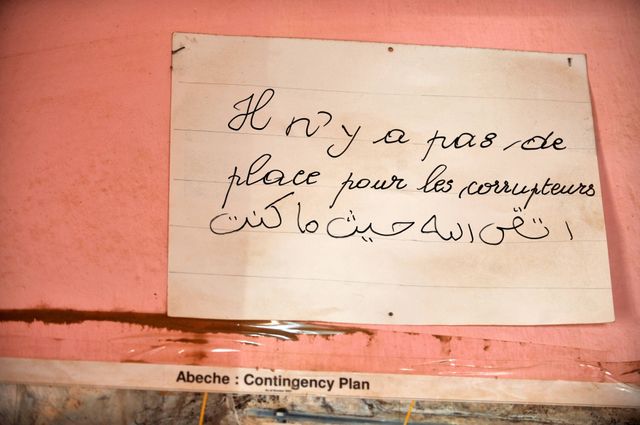 Il n'y a pas de
place pour les corrupteurs
اتقى الله حيث ما كنت
Abeche : Contingency Plan